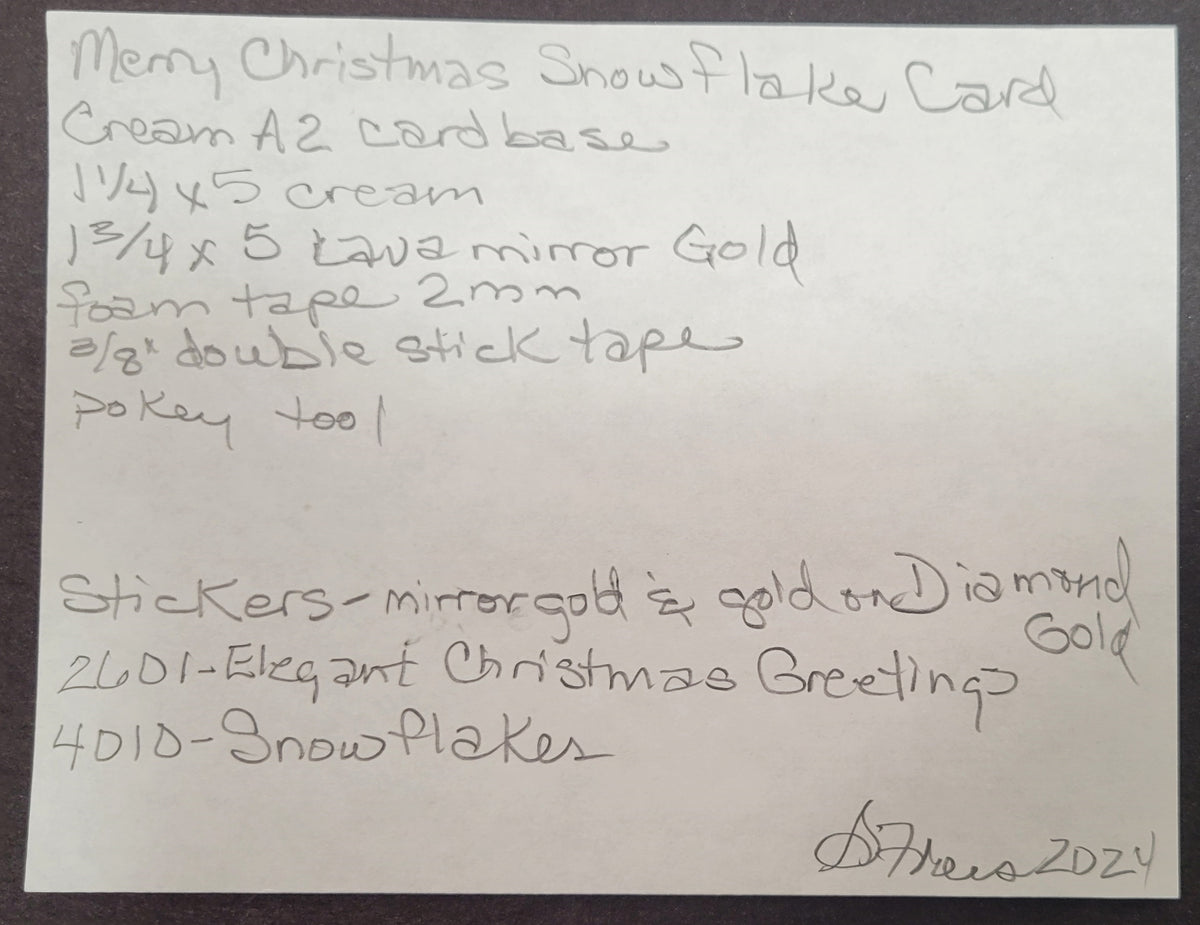 Merry Christmas Snowflake Card
Cream A2 card base
1 1/4 x 5 cream
1 3/4 x 5 Lava mirror Gold
foam tape 2mm
3/8" double stick tape
pokey tool
Stickers - mirror gold & gold on Diamond
Gold
2601 - Elegant Christmas Greetings
4010 - Snowflakes
2024